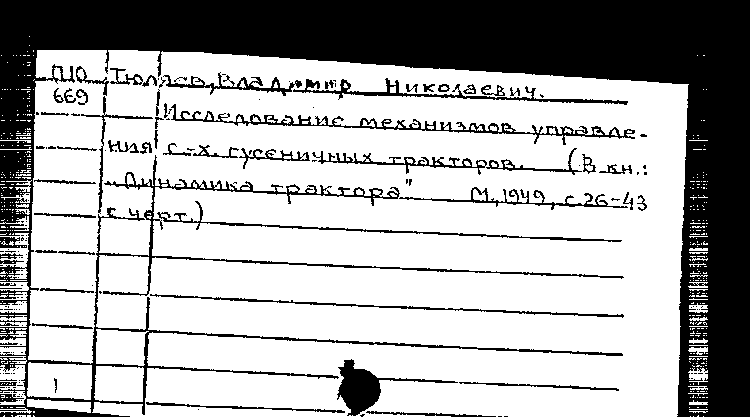 П10 Тюляев, Владимир Николаевич.
669
Исследование механизмов управле-
ния с-х. гусеничных тракторов. (В кн.:
„Динамика трактора" М., 1949, с. 26-43
с черт.)
1